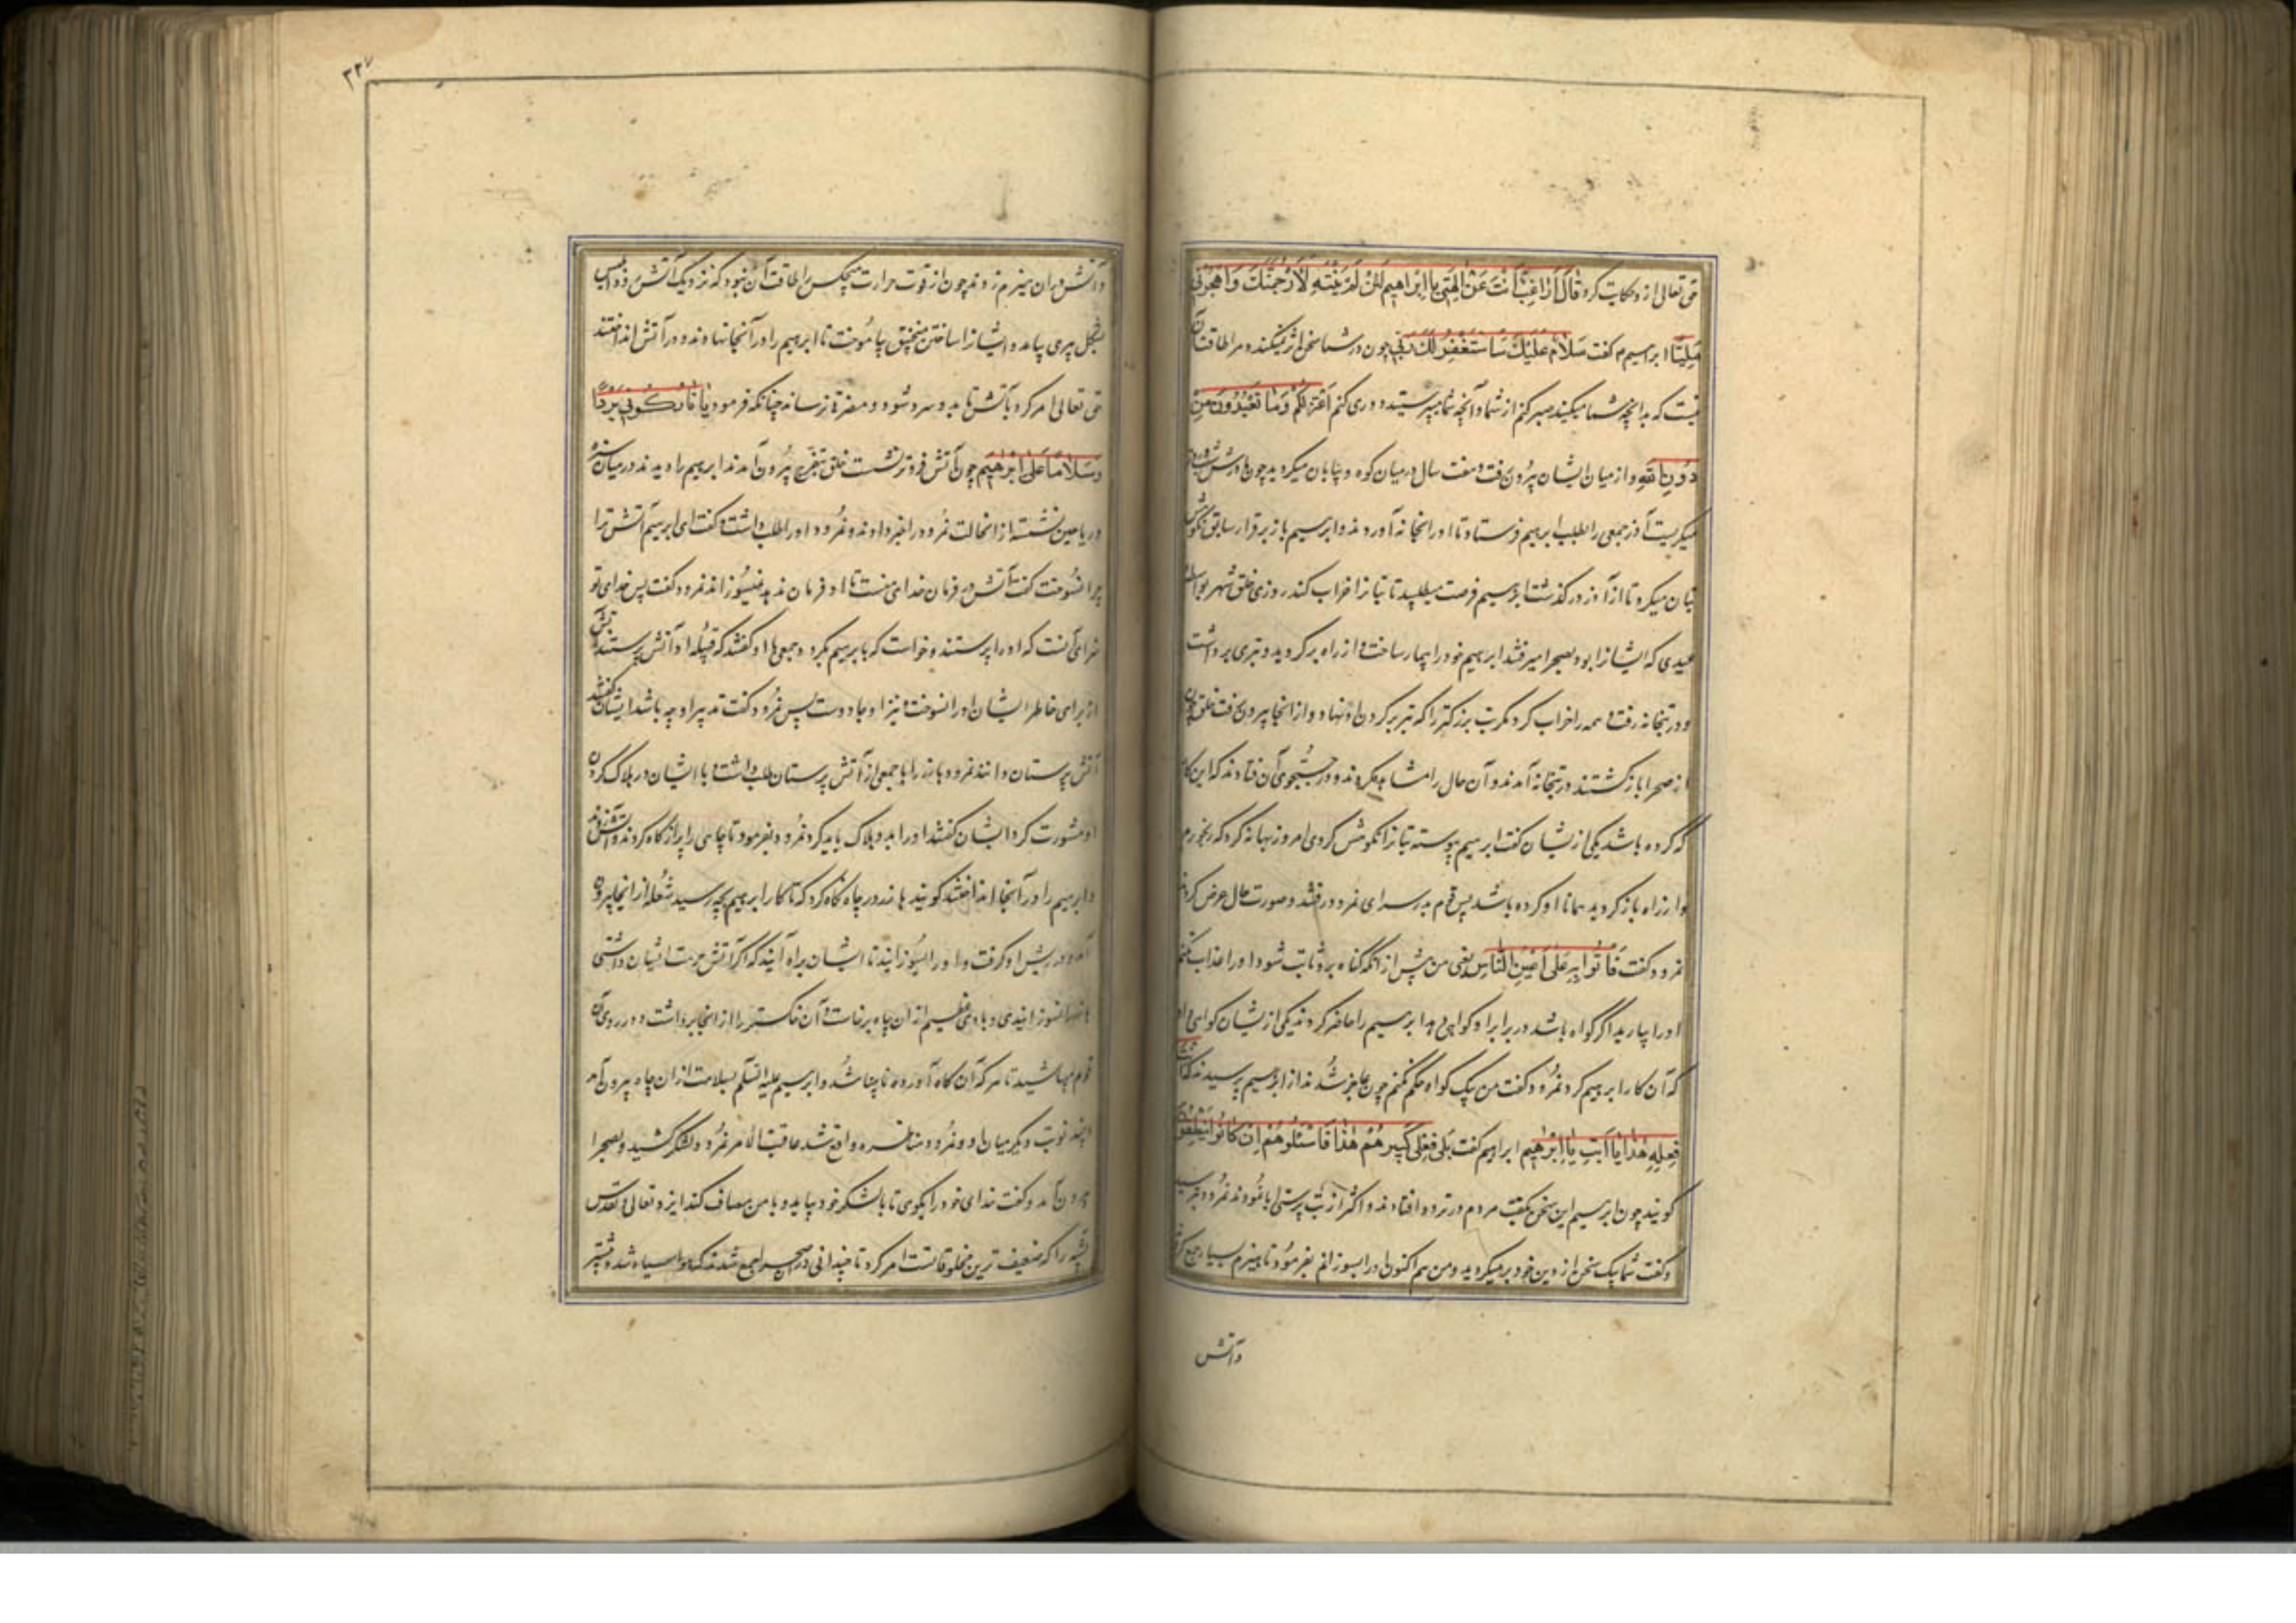 حق تعالی ازو حکایت کرد قَالَ أَرَاغِبٌ أَنْتَ عَنْ آلِهَتِی یَا إِبْرَاهِیمُ لَئِنْ لَمْ تَنْتَهِ لَأَرْجُمَنَّكَ وَاهْجُرْنِی
مَلِیًّا ابراهیم گفت سَلَامٌ عَلَیْكَ سَأَسْتَغْفِرُ لَكَ رَبِّی چون در شما سخن اثر نمیکند و مرا طاقت آن
نیست که بدانچه شما میکنید صبر کنم از شما و آنچه شما میپرستید دوری کنم أَعْتَزِلُكُمْ وَمَا تَعْبُدُونَ مِنْ
دُونِ اللهِ و از میان ایشان بیرون رفت و هفت سال در میان کوه و بیابان میگردید چون
آزر جمعی را بطلب ابراهیم فرستاد تا او را بخانه آوردند و ابراهیم باز برقرار سابق نکوهش
بتان میکرد تا آزر درگذشت ابراهیم فرصت میطلبید تا بتانرا خراب کند روزی خلق شهر بواسطه
عیدی که ایشانرا بود بصحرا میرفتند ابراهیم خود را بیمار ساخت و از راه برگردید و تبری برداشت
و در بتخانه رفت و همه را خراب کرد مگر بت بزرگتر را که تبر بر گردن او نهاد و از آنجا بیرون رفت خلق چون
از صحرا باز گشتند در بتخانه آمدند و آن حال را مشاهده کردند و در جستجوی آن فتادند که این کار
که کرده باشد یکی ازیشان گفت ابراهیم پیوسته بتانرا نکوهش کردی امروز بهانه کرد که رنجورم
و از راه باز گردید همانا او کرده باشد پس قوم بدر سرای نمرود رفتند و صورت حال عرض کردند
نمرود گفت فَأْتُوا بِهِ عَلَى أَعْیُنِ النَّاسِ یعنی من پیش از آنکه گناه برو ثابت شود او را عذاب نکنم
او را بیارید اگر گواه باشد در برابر او گواهی دهد ابراهیم را حاضر کردند یکی ازیشان گواهی داد
که آن کار ابراهیم کرد نمرود گفت من بیک گواه حکم نکنم چون عاجز شدند از ابراهیم پرسیدند
فعلیه هٰذَا یا ابت یَا إِبْرَاهِیمُ ابراهیم گفت بلی فعلی كَبِیرُهُمْ هٰذَا فَاسْئَلُوهُمْ إِنْ كَانُوا یَنْطِقُونَ
گویند چون ابراهیم این سخن بگفت مردم در تردد افتادند و اکثر از بت پرستی ابا نمودند نمرود بترسید
و گفت شما بیک سخن از دین خود برمیگردید و من هم اکنون او را بسوزانم بفرمود تا هیزم بسیار جمع کردند
وآتش
۳۲۷
و آتش در آن هیزم زدند چون از قوت حرارت هیچکس را طاقت آن نبود که نزدیک آتش رود ابلیس
بشکل پیری بیامد و ایشانرا ساختن منجنیق بیاموخت تا ابراهیم را در آنجا نهادند و در آتش انداختند
حق تعالی امر کرد بآتش تا برو سرد شود و مضرة نرساند چنانکه فرمود یَا نَارُ كُونِی بَرْدًا
وَسَلَامًا عَلَى إِبْرَاهِیمَ چون آتش فرو نشست خلق بتفرج بیرون آمدند ابراهیم را دیدند در میان سبزه
و ریاحین نشسته ازانحالت نمرود را خبر دادند و نمرود او را طلب داشت و گفت ای ابراهیم آتش ترا
چرا نسوخت گفت آتش بفرمان خدای منست تا او فرمان ندهد نسوزاند نمرود گفت پس خدای تو
خدائیست که او را پرستند و خواست که بابراهیم بگرود جمعی با او گفتند که قبیله او آتش پرستند آتش
از برای خاطر ایشان او را نسوخت و نیز او جادوست پس نمرود گفت تدبیر او چه باشد ایشان گفتند
آتش پرستان دانند نمرود هاند را با جمعی از آتش پرستان طلب داشت و با ایشان در هلاک کردن
او مشورت کرد ایشان گفتند او را بدود هلاک باید کرد نمرود بفرمود تا چاهی را پر از کاه کردند و آتش زدند
و ابراهیم را در آنجا انداختند گویند هاند در چاه نگاه کرد که تا کار ابراهیم بچه رسید شعله از آنجا بیرون
آمد و در ریش او گرفت و او را بسوزانید تا ایشان براه آیند که اگر آتش حرمت ایشان داشتی
هاند را نسوزانیدی و بادی عظیم از ان چاه برخاست و آن خاکستر را از آنجا برداشت و در روی آن
قوم پاشید تا هر که آن کاه آورده نابینا شد و ابراهیم علیه السلم بسلامت ازان چاه بیرون آمد
و چند نوبت دیگر میان او و نمرود مناظره واقع شد عاقبة الامر نمرود لشکر کشید و بصحرا
بیرون آمد و گفت خدای خود را بگوی تا با لشکر خود بیاید و با من مصاف کند ایزد تعالی و تقدس
پشه را که ضعیف ترین مخلوقاتست امر کرد تا چندانی در آن صحرا جمع شدند که هوا سیاه شد و بیشتر